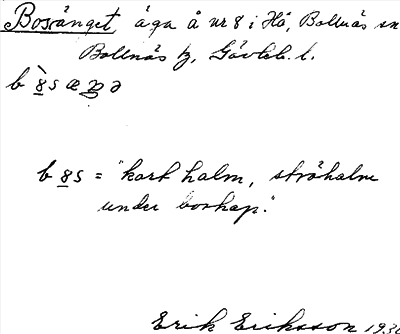 Bosvänget äga å nr 8 i Hå, Bollnäs sn
Bollnäs tg, Gävleb. l.
"kort halm, ströhalm
under boskap."
Erik Eriksson 1930